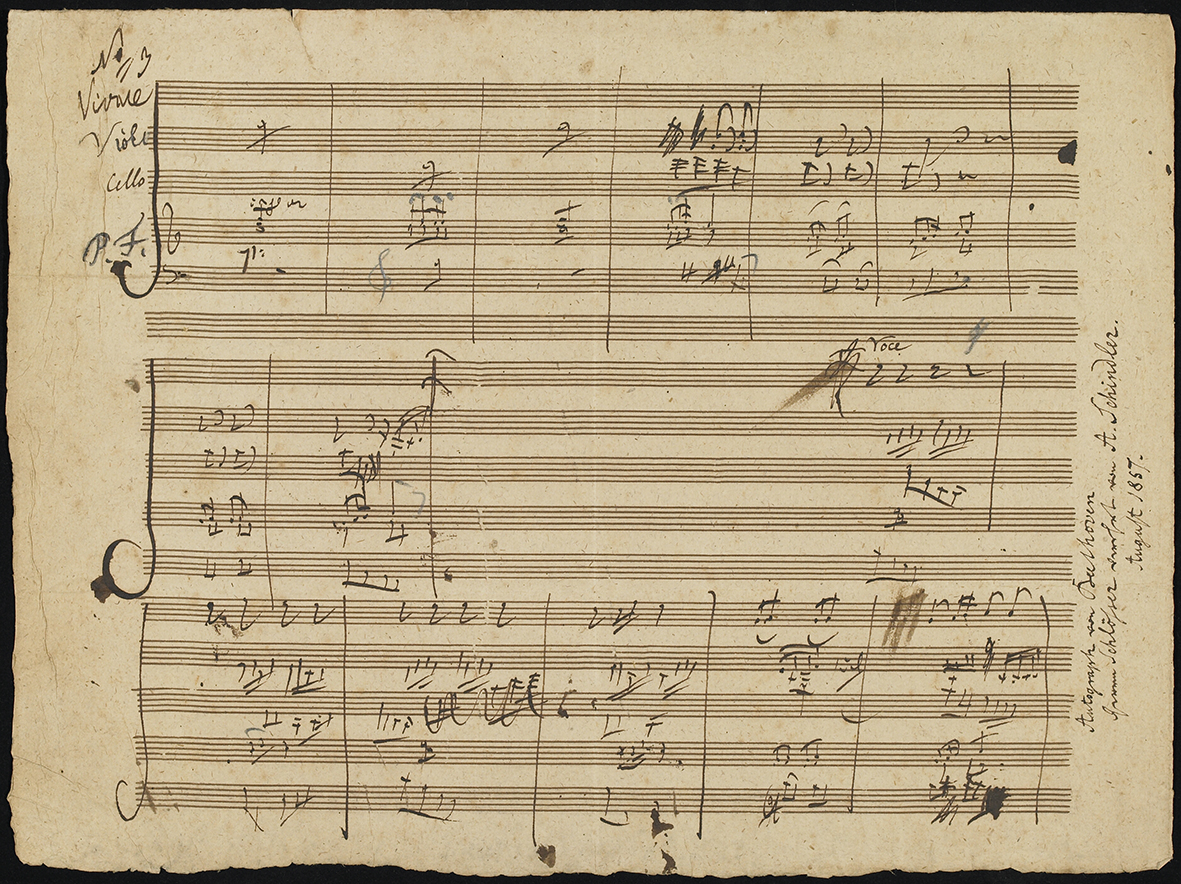 No 3
Vivace
Viol:
Cello
P. F.
Voce
Autograph von Beethoven
Herrn Schlösser verehrt von A. Schindler.
August 1857.